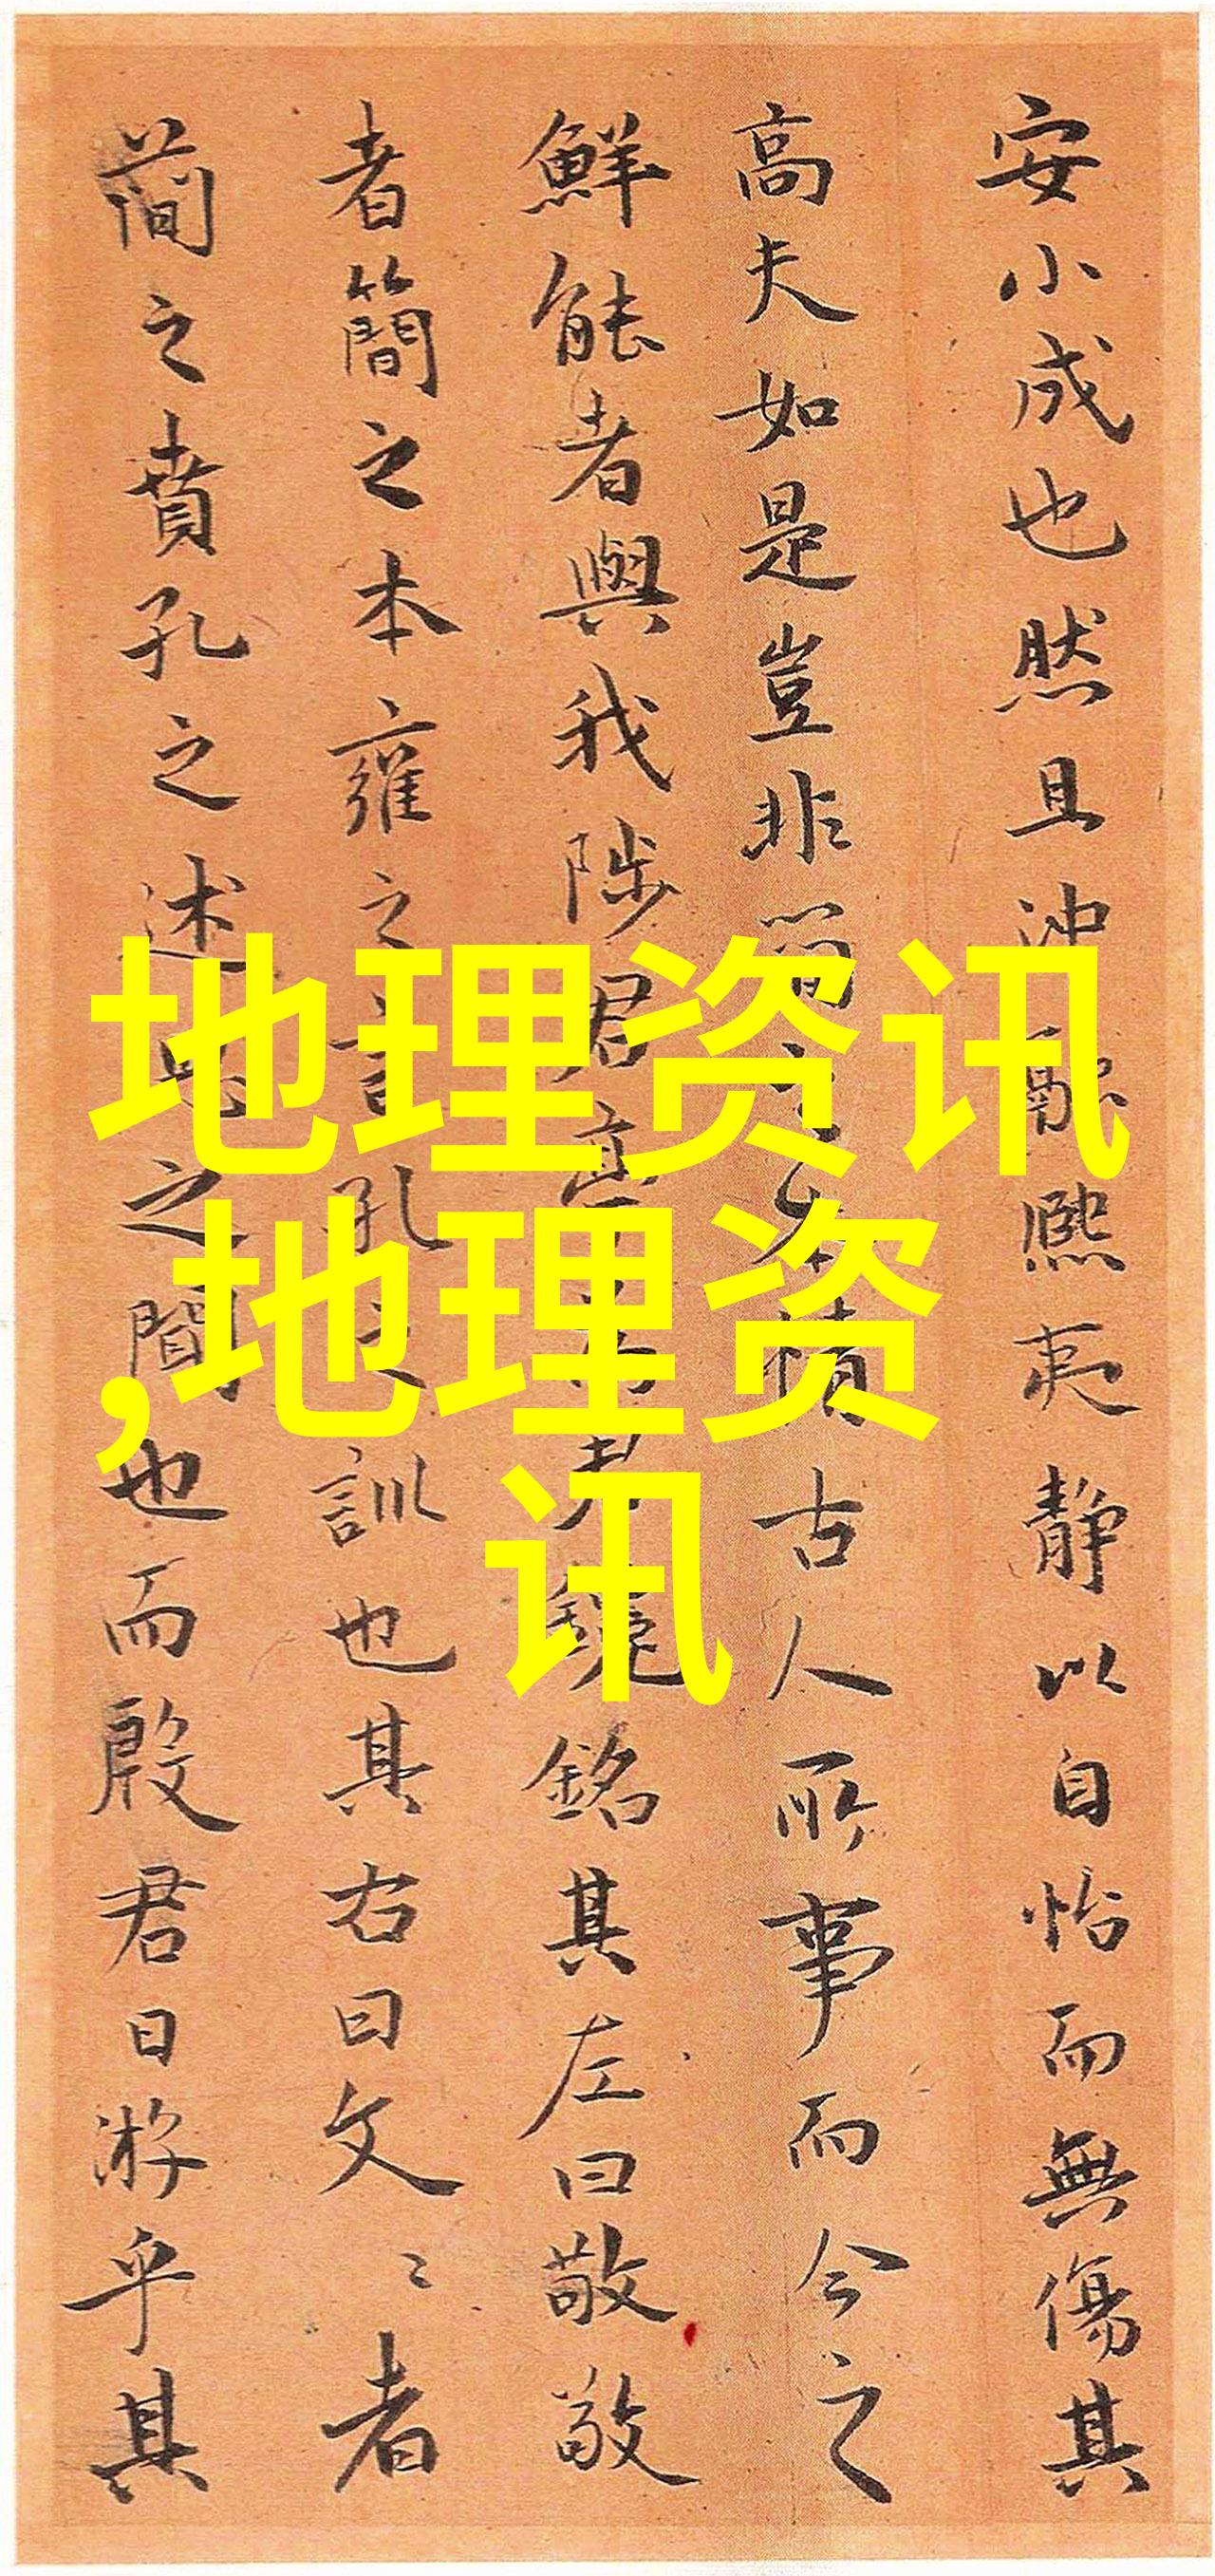 安小成也然且沖融熙夷静以自怡而無傷其
高夫如是豈非簡之本情古人所事而今之
鮮能者與我陟君
銘其左曰敬敬
者簡之本雍之言孔之訓也其右曰文〻者
簡之賁孔之述思之間也而殷君日游乎其
地理资讯
,地理资
讯